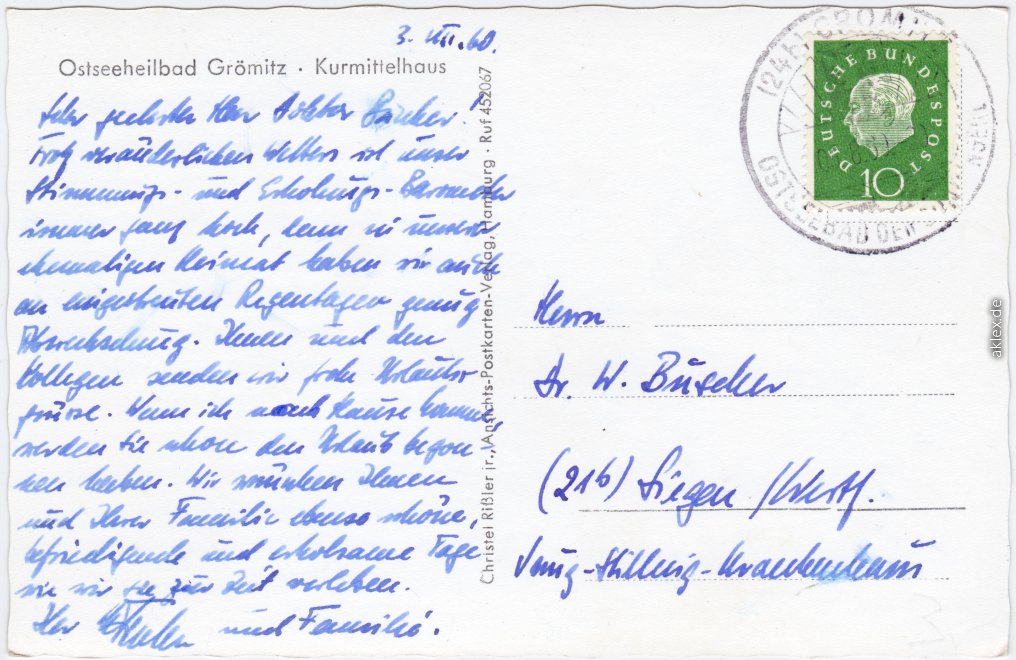 3. VII. 60.
Ostseeheilbad Grömitz · Kurmittelhaus
Sehr geehrter Herr Doktor Büscher!
Trotz veränderlichen Wetters ist unser
Stimmungs- und Erholungs-Barometer
immer ganz hoch, denn in unserer
ehemaligen Heimat haben wir auch
an eingestreuten Regentagen genug
Abwechslung. Ihnen und den
Kollegen senden wir frohe Urlaubs-
grüsse. Wenn ich nach Hause komme,
werden Sie schon den Urlaub begon-
nen haben. Wir wünschen Ihnen
und Ihrer Familie ebenso schöne,
befriedigende und erholsame Tage
wie wir sie zur Zeit verleben.
Ihr und Familie.
Christel Rißler jr. „Ansichts-Postkarten-Verlag, Hamburg · Ruf 452067
DEUTSCHE BUNDESPOST
10
(24b) GRÖMITZ
OSTSEEBAD DER
Herrn
Dr. W. Büscher
(21b) Siegen /Westf.
Jung-Stilling-Krankenhaus
aklex.de